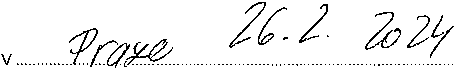 v Praze 26.2. 2024